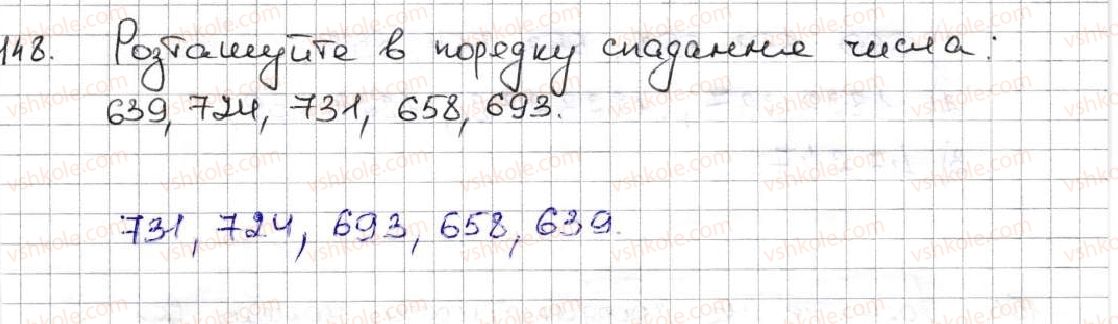 148. Розташуйте в порядку спадання числа:
639, 724, 731, 658, 693.
731, 724, 693, 658, 639.